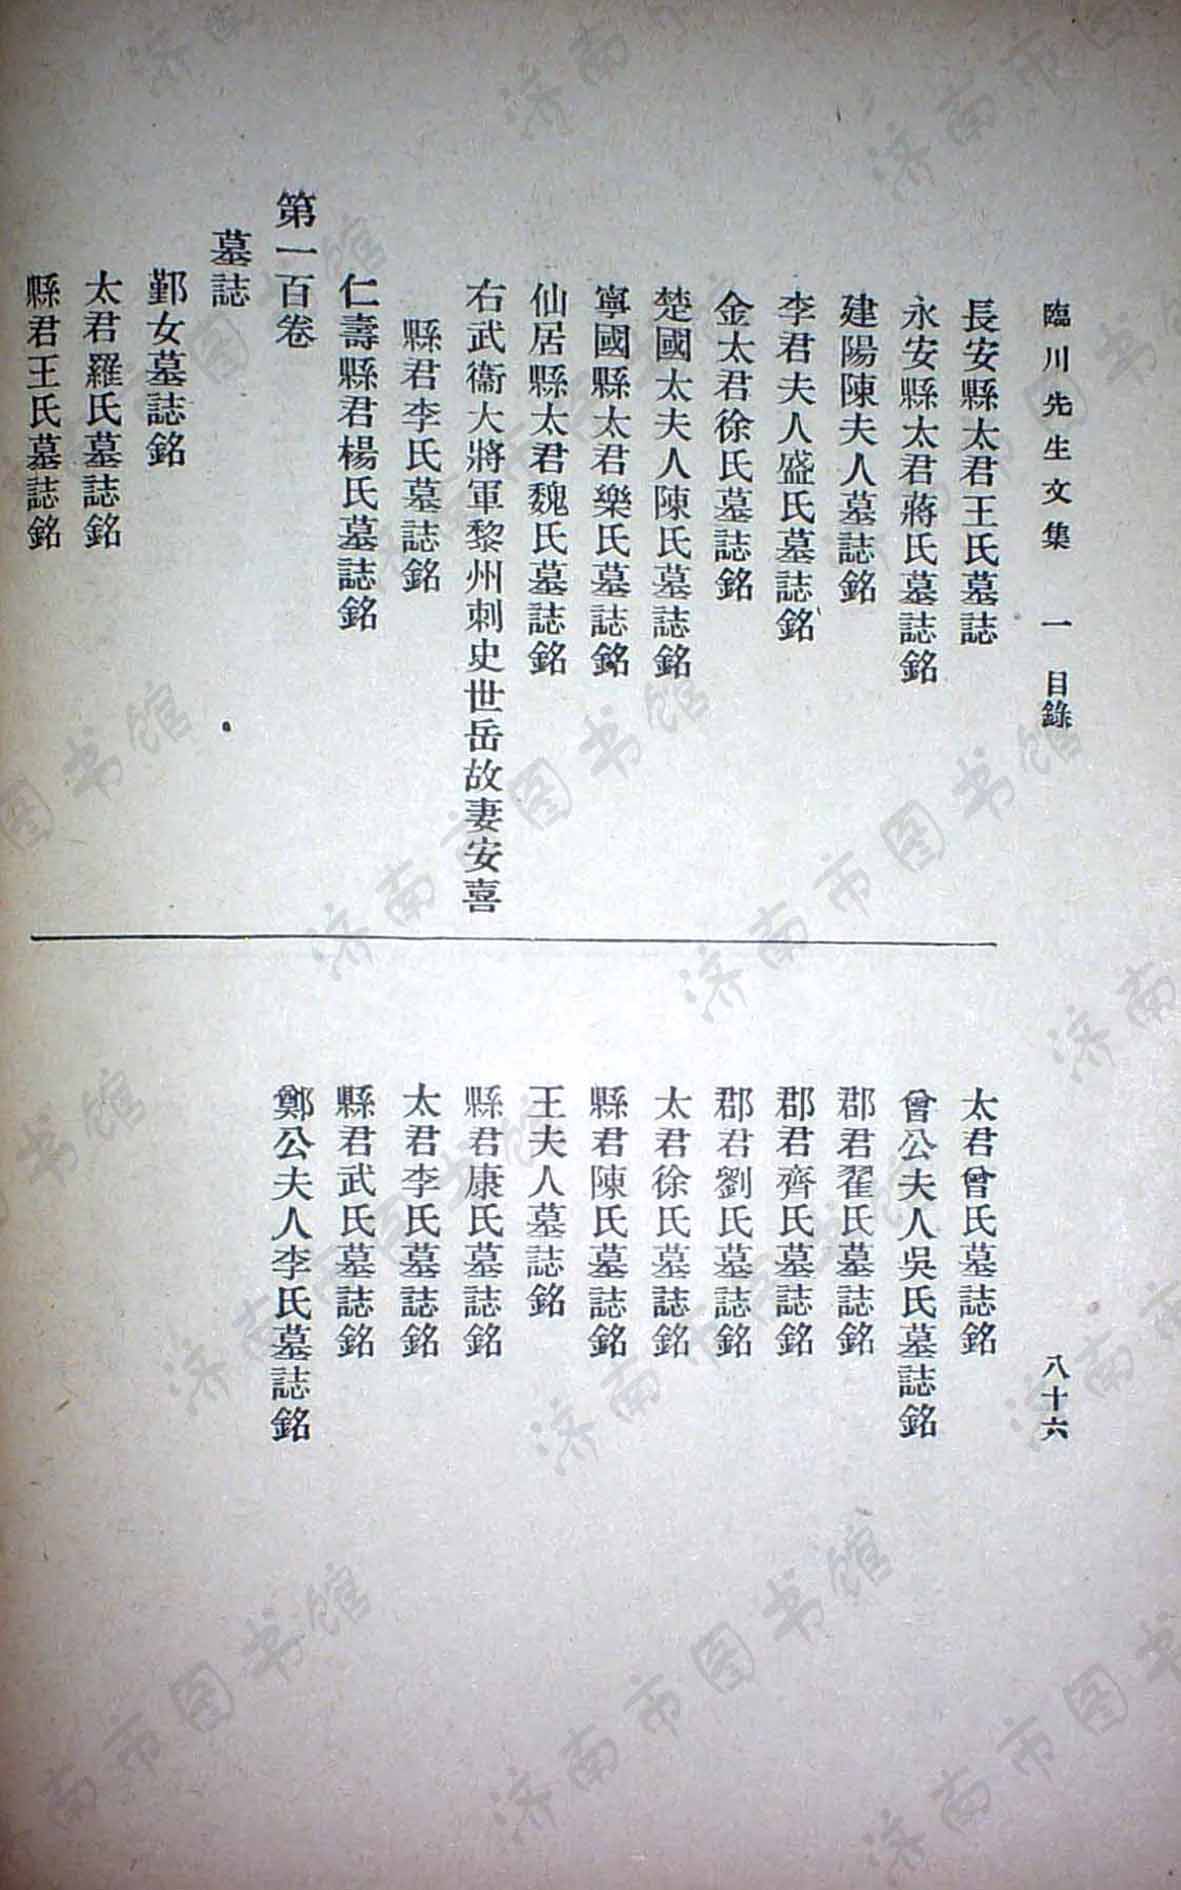 臨川先生文集　一　目錄　八十六
長安縣太君王氏墓誌
永安縣太君蔣氏墓誌銘
建陽陳夫人墓誌銘
李君夫人盛氏墓誌銘
金太君徐氏墓誌銘
楚國太夫人陳氏墓誌銘
寧國縣太君樂氏墓誌銘
仙居縣太君魏氏墓誌銘
右武衞大將軍黎州刺史世岳故妻安喜
縣君李氏墓誌銘
仁壽縣君楊氏墓誌銘
第一百卷
墓誌
鄞女墓誌銘
太君羅氏墓誌銘
縣君王氏墓誌銘
太君曾氏墓誌銘
曾公夫人吳氏墓誌銘
郡君翟氏墓誌銘
郡君齊氏墓誌銘
郡君劉氏墓誌銘
太君徐氏墓誌銘
縣君陳氏墓誌銘
王夫人墓誌銘
縣君康氏墓誌銘
太君李氏墓誌銘
縣君武氏墓誌銘
鄭公夫人李氏墓誌銘
济南市图书馆